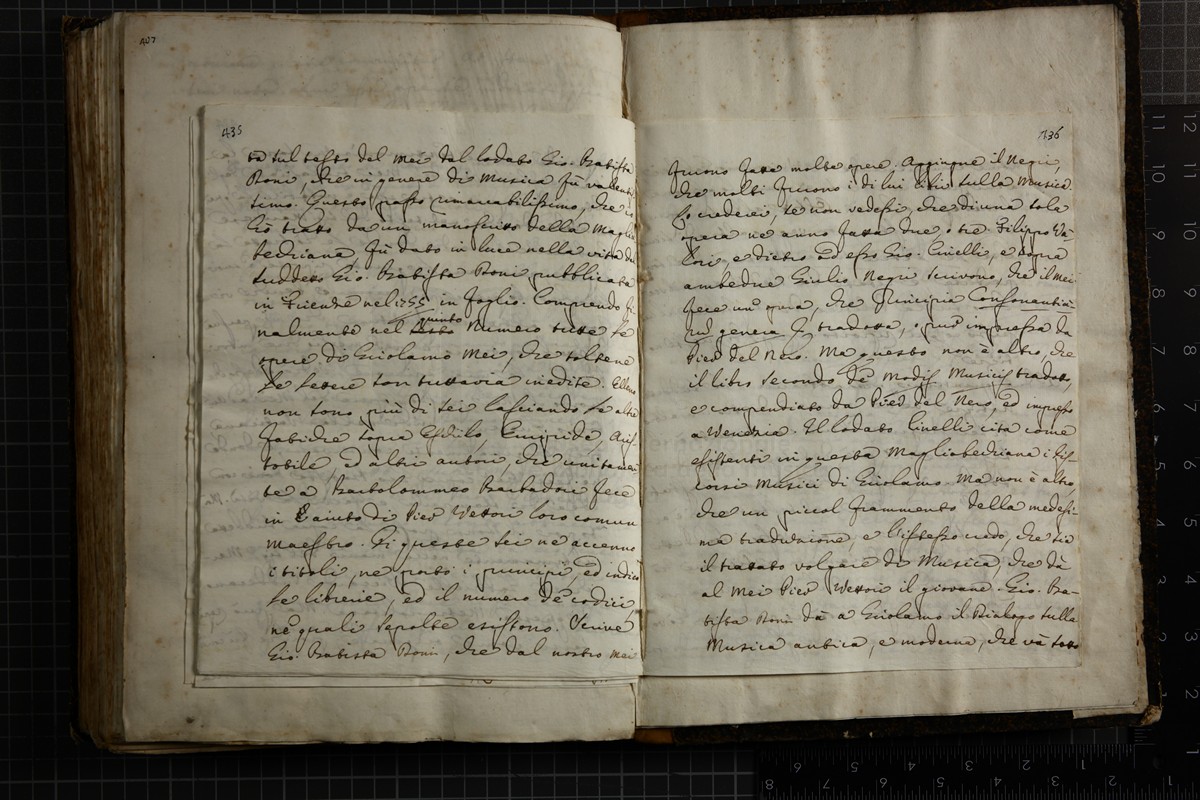 407
435
to sul testo del Mei dal lodato Gio. Batista
Doni, che in genere di Musica fù valenti
simo. Questo passo rimarcabilissimo, che io
hò tratto da un manoscritto della Maglia
bechiana, fù dato in luce nella vita del
suddetto Gio. Batista Doni pubblicata
in Firenze nel 1755 in foglio. Comprendo fi
nalmente nel sesto quinto Numero tutte le
opere di Girolamo Mei, che toltene
le lettere son tuttavia inedite. Elleno
non sono più di sei lasciando le altre
fatiche sopra Eschilo, Euripide, Aris
totile, ed altri autori, che unitamen
te a Bartolommeo Barbadori fece
in aiuto di Pier Vettori loro comun
maestro. Di queste sei ne accenno
i titoli, ne porto i principj, ed indico
le librerie, ed il numero de' codici,
ne' quali sepolte esistono. Scrive
Gio. Batista Doni, che dal nostro Mei
436
furono fatte molte opere. Aggiugne il Negri,
che molti furono i di lui libri sulla Musica.
Io crederei, se non vedessi, che di una sola
opera ne anno fatta due, o tre. Filippo Va-
lori, e dietro ad esso Gio. Cinelli, e dopo
ambedue Giulio Negri scrivono, che il Mei
fece un' opera, che principia Consonantia-
rum genera fù tradotta, e poi impressa da
Pier del Nero. Ma questo non è altro, che
il libro secondo de Modis Musicis tradotto,
e compendiato da Pier del Nero, ed impresso
a Venezia. Il lodato Cinelli cita come
esistenti in questa Magliabechiana i Dis-
corsi Musici di Girolamo. Ma non è altro,
che un piccol frammento della medesi-
ma traduzione, e l'istesso credo, che sia
il trattato volgare di Musica, che dà
al Mei Pier Vettori il giovane. Gio. Ba-
tista Doni dà a Girolamo il Dialogo sulla
Musica antica, e moderna, che và sotto